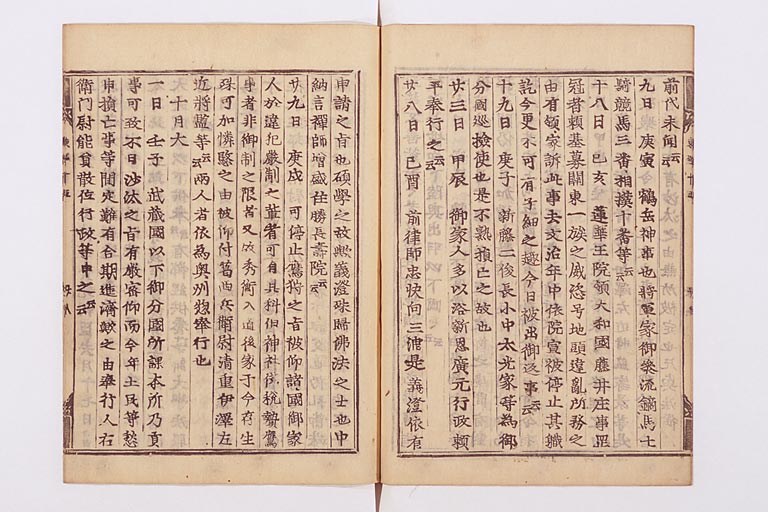 前代未聞云云
九日 庚寅 今 鶴岳神事也將軍家御參流鏑馬十
騎競馬三番相撲十番等云云
十八日 己亥 蓮華王院領大和國藤井庄事罡
冠者頼基募關東一族之威恣号地頭違亂所務之
由有領家訴此事去文治年中依院宣被停止其職
訖今更不可有子細之趣今日被出御返事云云
十九日 庚子 加新藤二俊長小中太光家等為御
分國巡撿使也是不熟損亡之故也
廿三日 甲辰 御家人多以浴新恩廣元行政頼
平奉行之云云
廿八日 己酉 前律師忠快向三浦是義澄依有
申請之旨也碩學之故歟義澄殊賜佛法之士也中
納言禪師增盛住勝長壽院云云
廿九日 庚戌 可停止鷹狩之旨被仰諸國御家
人於違犯嚴制之輩者可有其科但神社供税贄鷹
事者非御制之限者又故秀衡入道後家于今存生
殊可加憐愍之由被仰付葛西兵衛尉清重伊澤左
近將監等云云兩人者依為奥州惣奉行也
十月大
一日 壬子 武藏國以下御分國所課本所乃貢
事可致不日沙汰之旨有嚴密仰而今年土民等愁
申損亡事等間定難有合期進濟歟之由奉行人右
衛門尉能員散位行政等申之云云